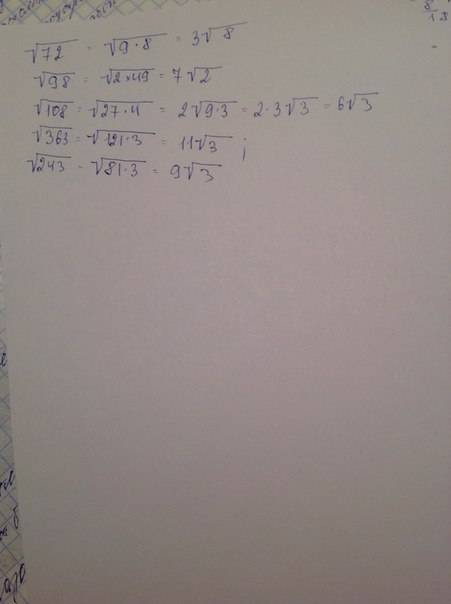 √72 = √9·8 = 3√8
√98 = √2×49 = 7√2
√108 = √27·4 = 2√9·3 = 2·3√3 = 6√3
√363 = √121·3 = 11√3 ;
√243 = √81·3 = 9√3
8
18